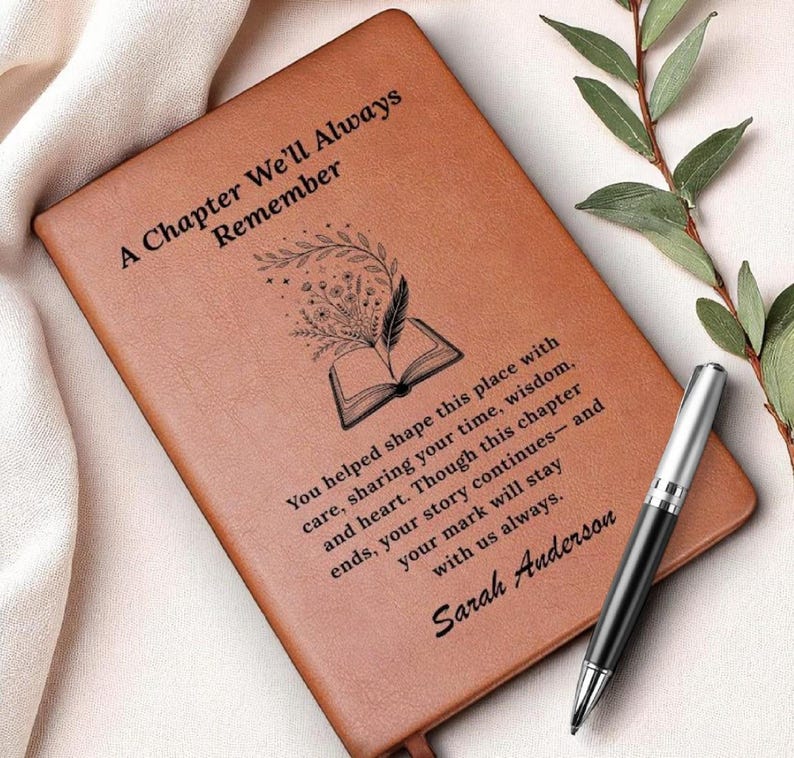 A Chapter We'll Always
Remember
You helped shape this place with
care, sharing your time, wisdom,
and heart. Though this chapter
ends, your story continues— and
your mark will stay
with us always.
Sarah Anderson